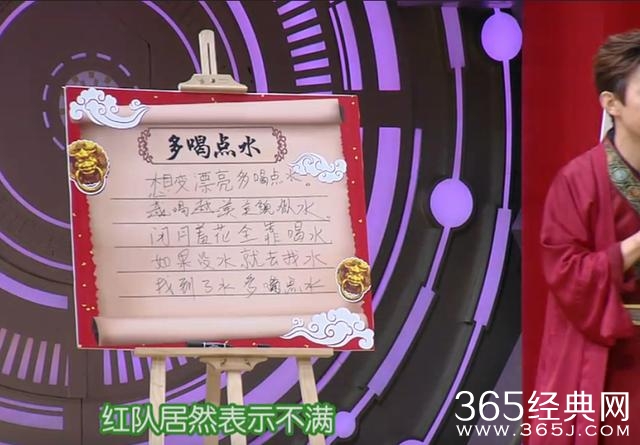 多喝点水
想变漂亮多喝点水。
越喝越美主貌似水
闭月羞花全靠喝水
如果没水就去找水
找到了水多喝点水
红队居然表示不满
365经典网
www.365J.com